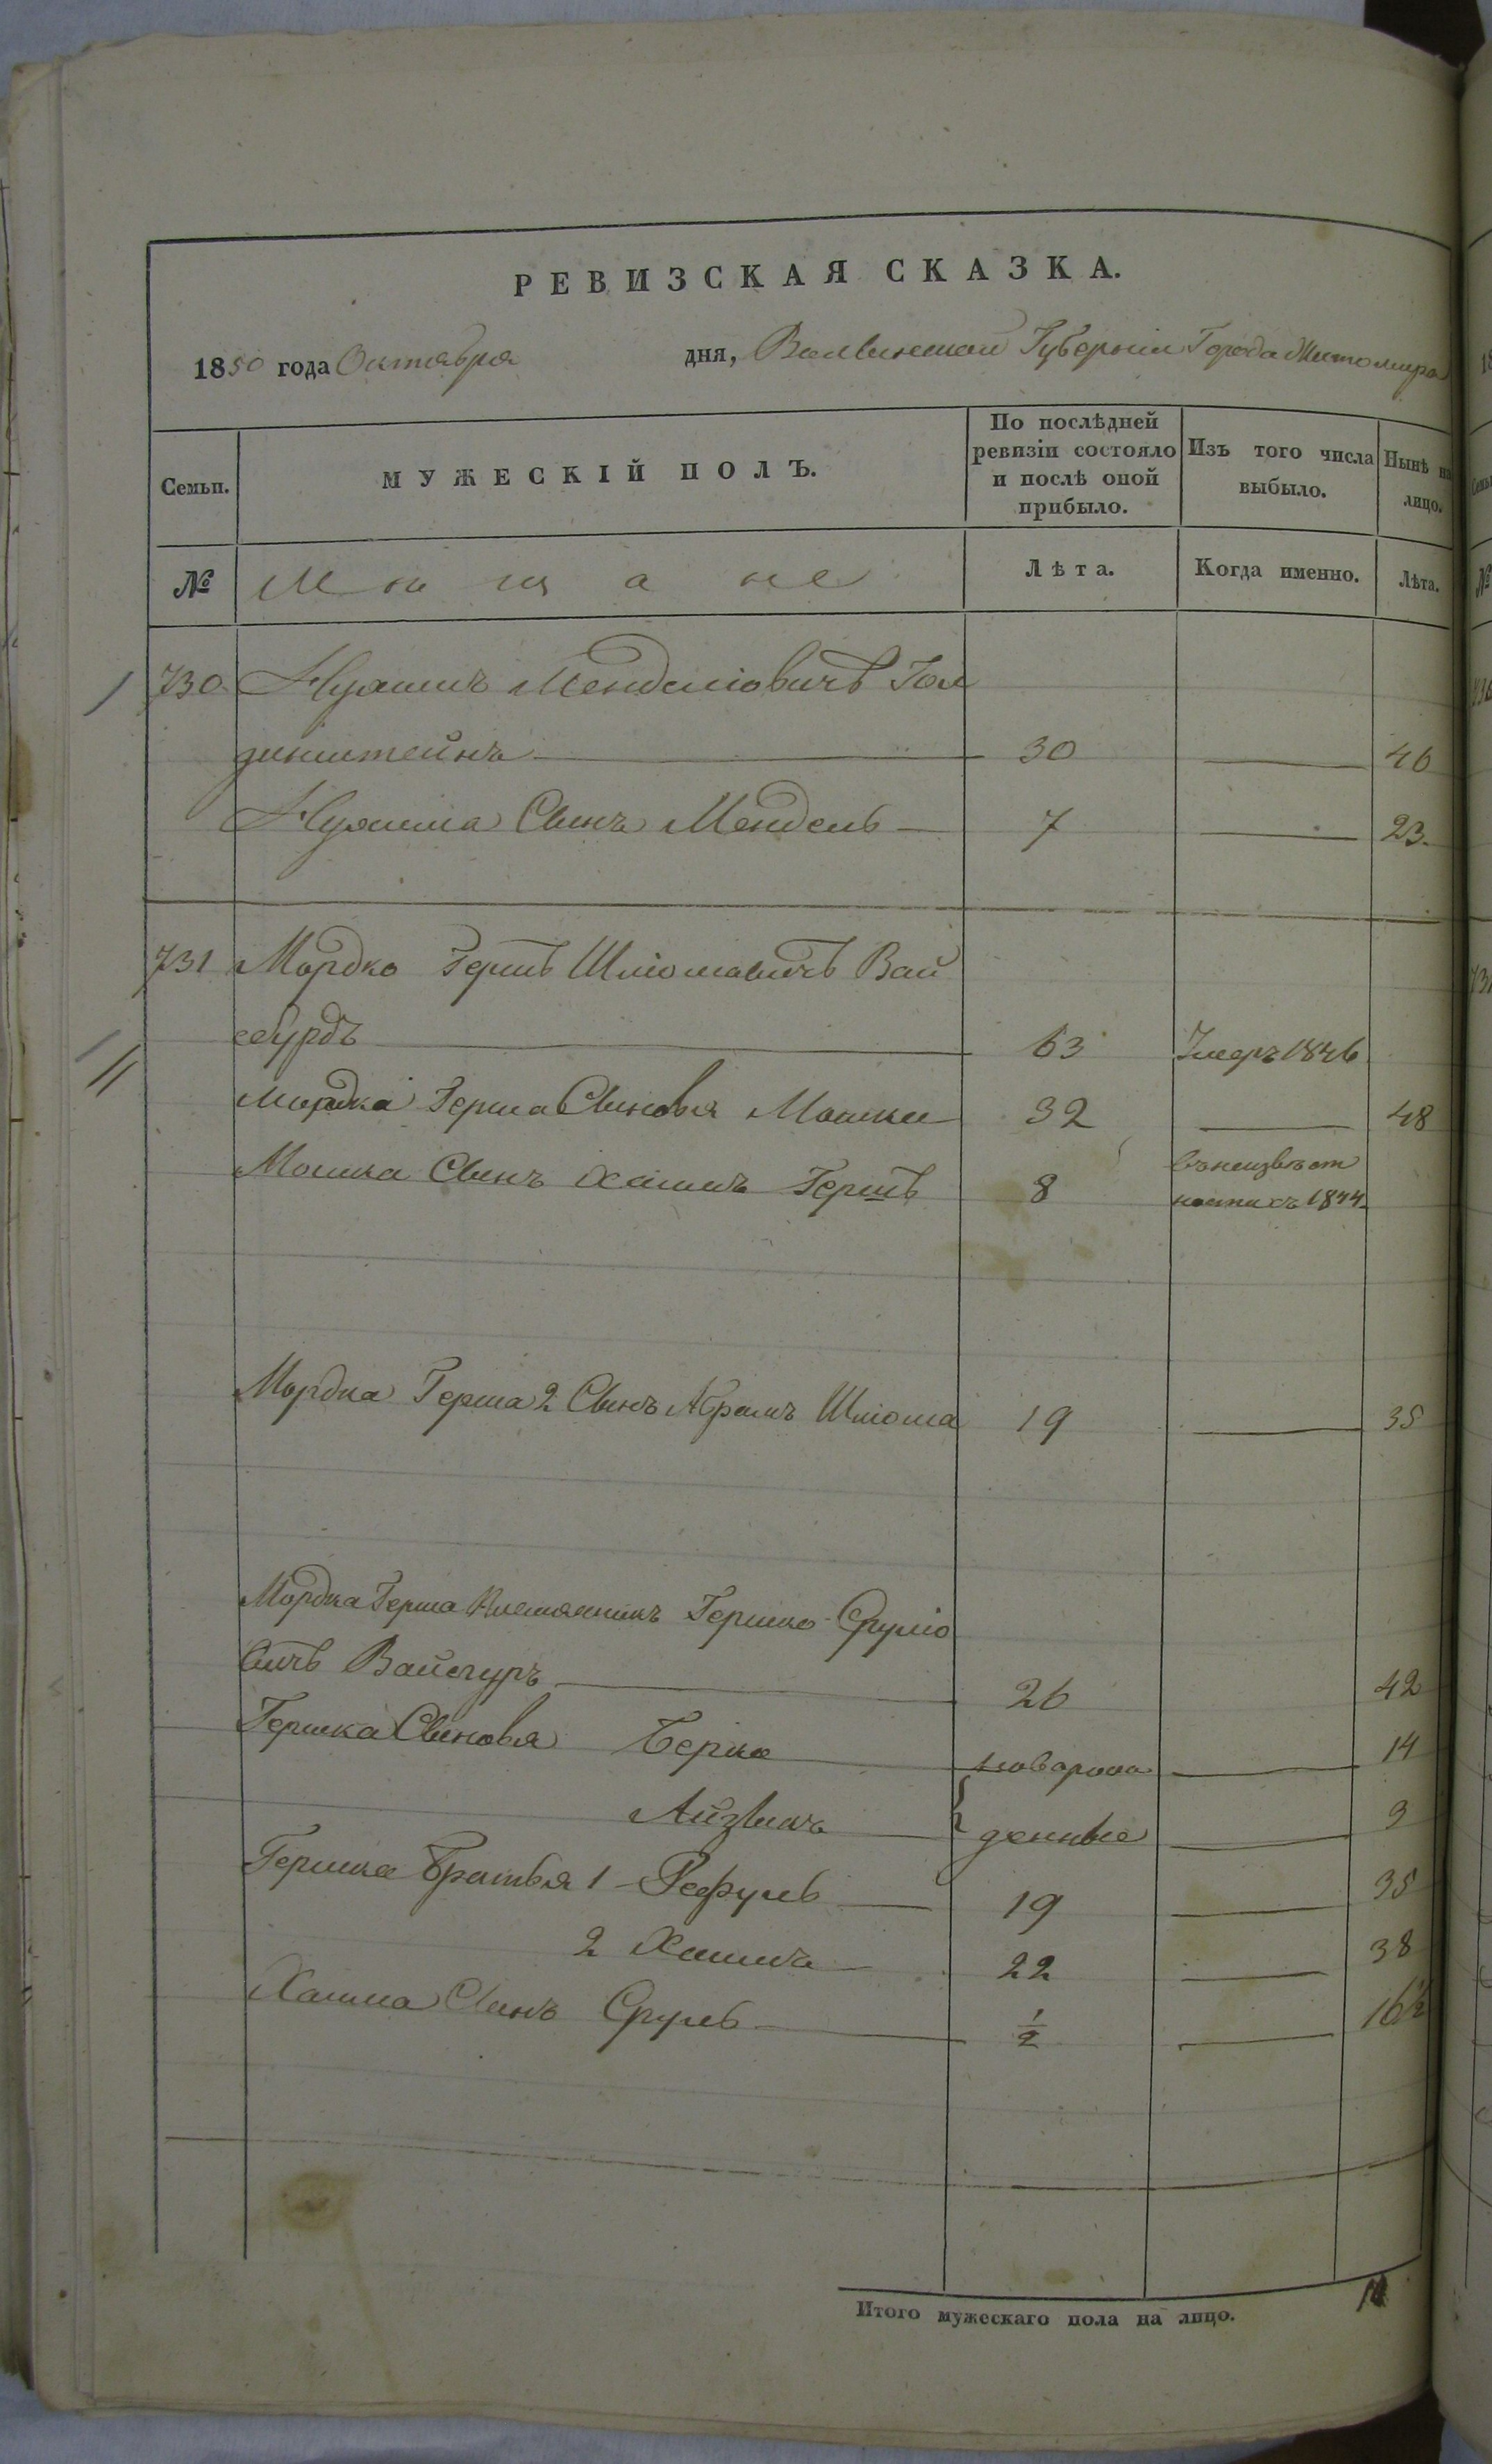 РЕВИЗСКАЯ СКАЗКА.
1850 года Октября дня, Волынской Губерніи Города Житомира
Семьи. МУЖЕСКІЙ ПОЛЪ. По послѣдней ревизіи состояло и послѣ оной прибыло. Изъ того числа выбыло. Нынѣ на лицо.
№ Мѣщане Лѣта. Когда именно. Лѣта.
730 Нухимъ Менделіовичъ Гол
денштейнъ 30 46
Нухима Сынъ Мендель 7 23.
731 Мордко Гершъ Шліомовичъ Вай
сбурдъ 63 Умеръ 1846
Мордка Герша Сыновья Мошко 32 48
Мошка Сынъ Хаимъ Гершъ 8 въ неизвѣст
ности съ 1844.
Мордка Герша 2 Сынъ Абрамъ Шліома 19 35
Мордка Герша Племянникъ Гершко Сруліо
вичъ 26 42
Гершка Сыновья Берко новорож 14
Айзикъ денные 9
Гершка Братья 1 Рефуль 19 35
2 Хаимъ 22 38
Хаима Сынъ Сруль ½ 16½
Итого мужескаго пола на лицо.